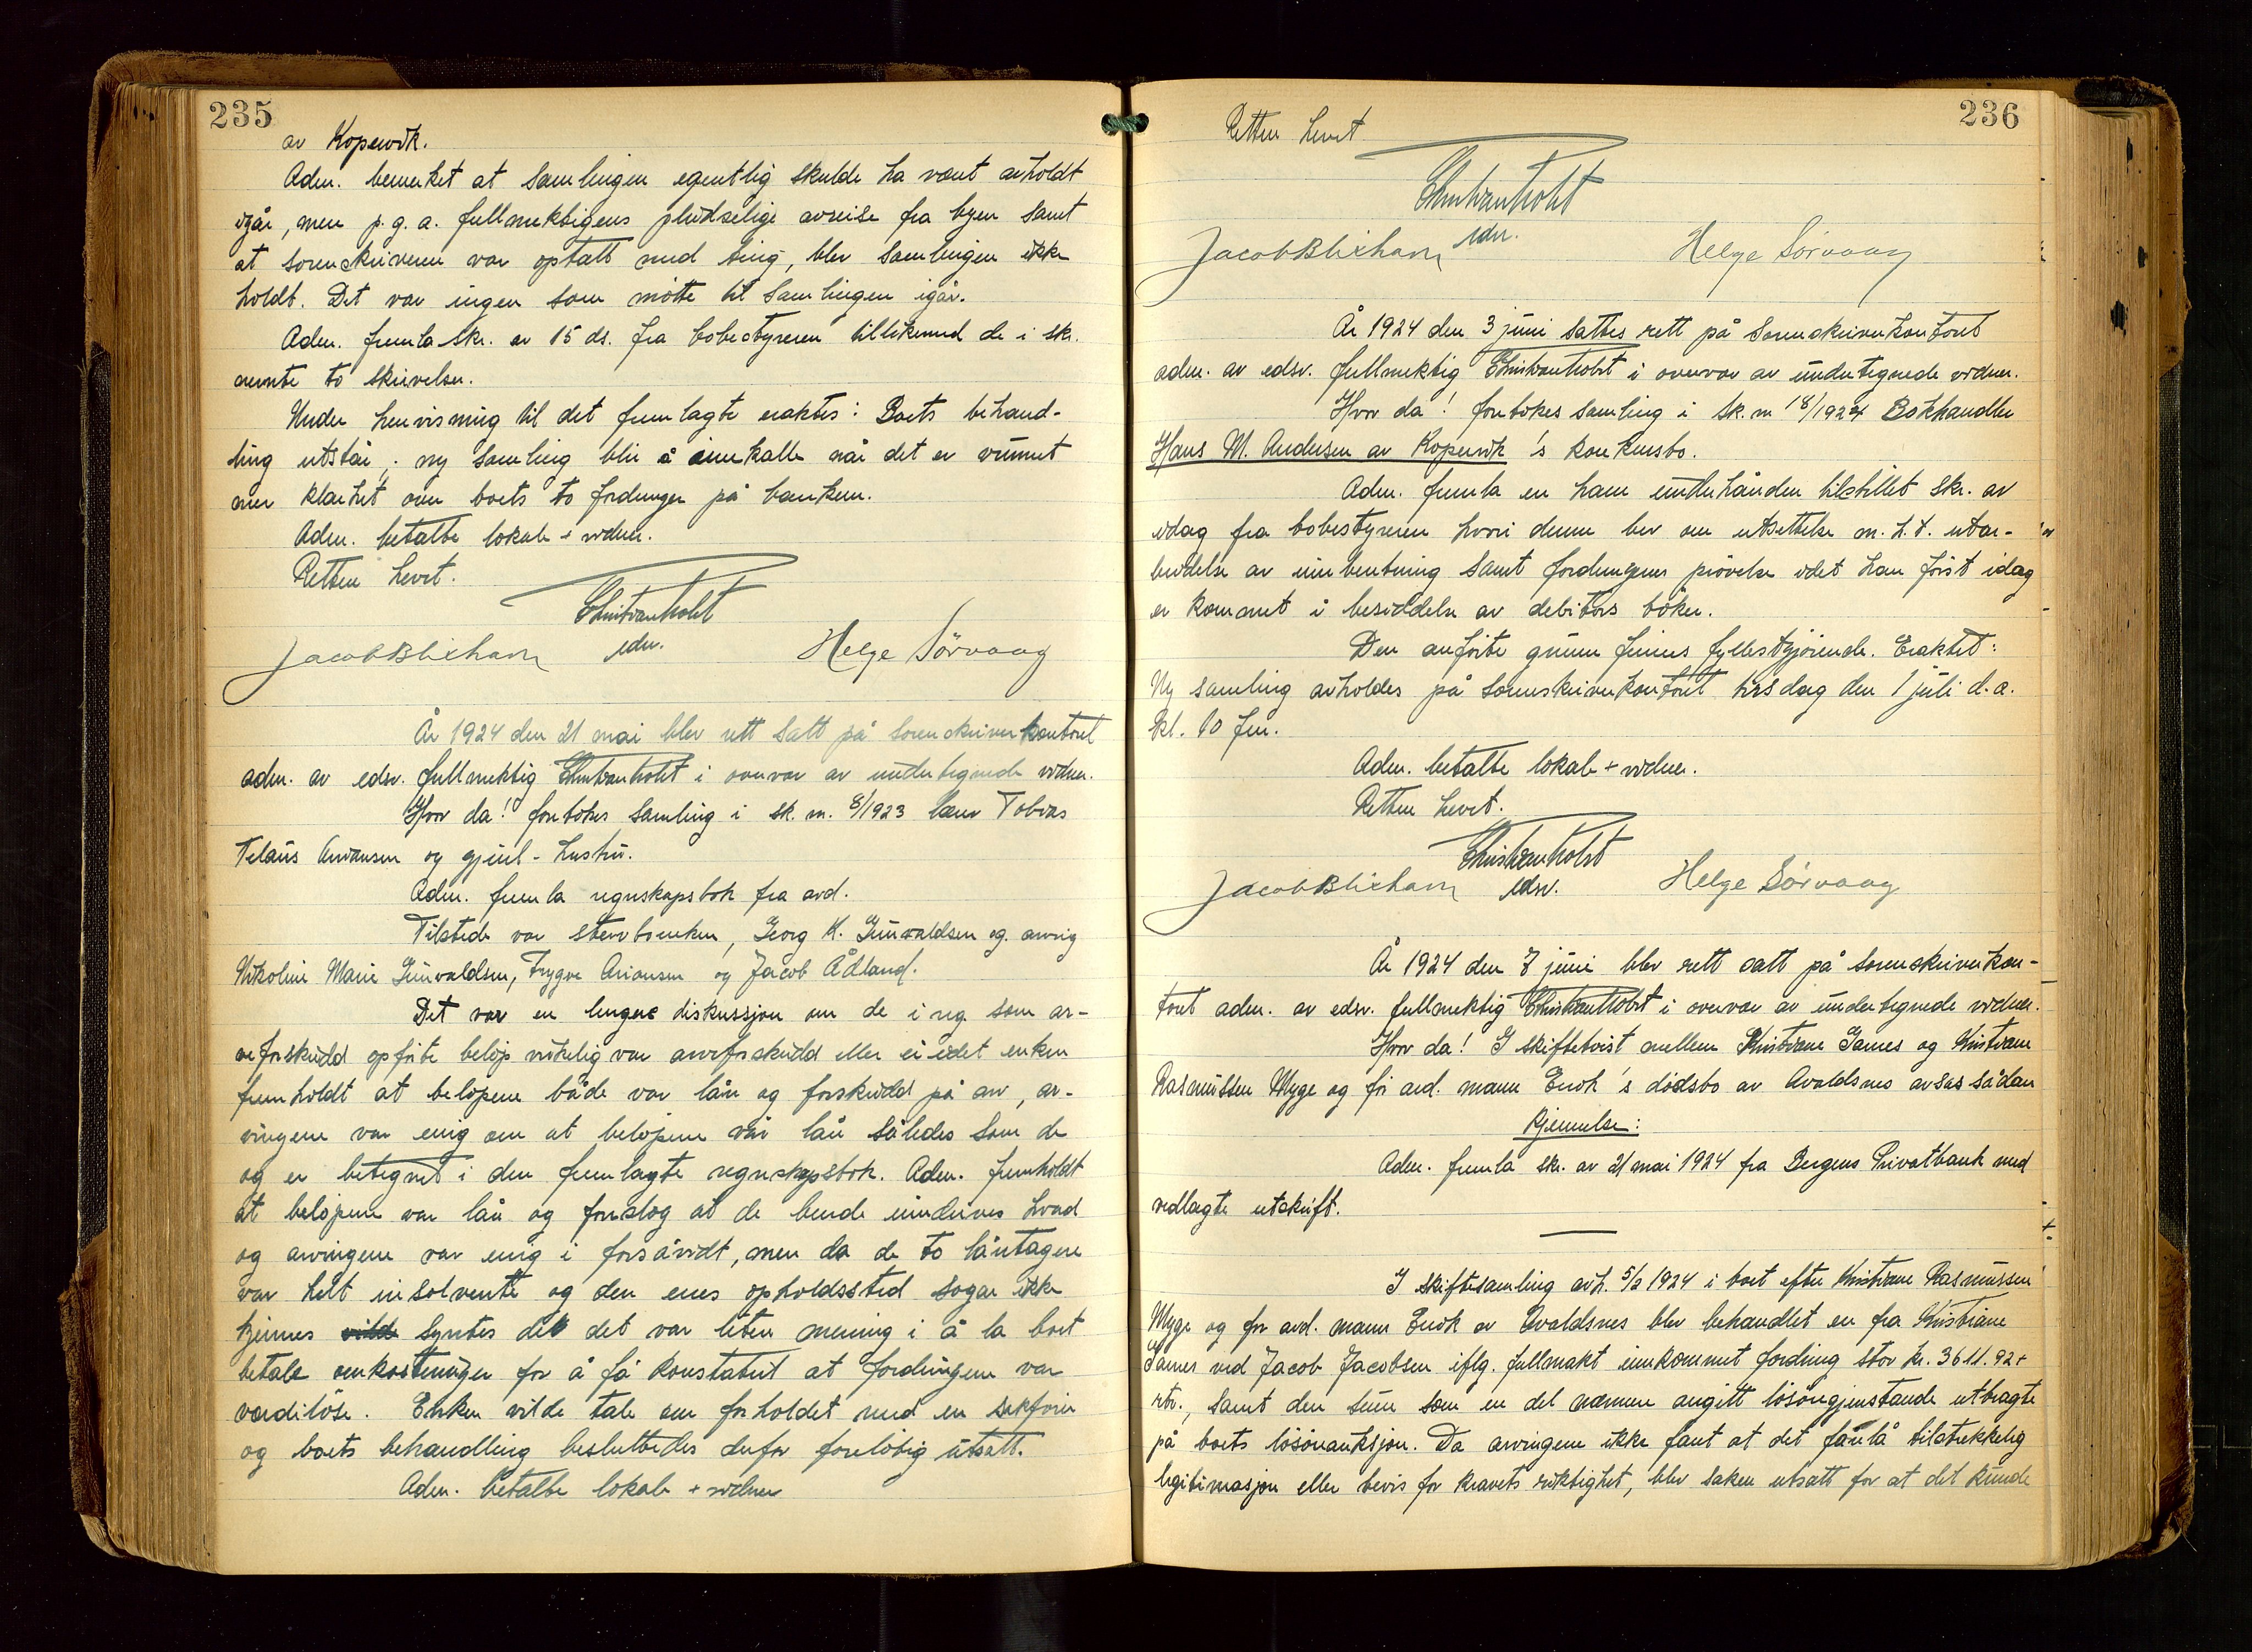 235
av Kopervik.
Adm. bemerket at samlingen egentlig skulde ha vært avholdt
igår, men p. g. a. fullmektigens pludselige avreise fra byen samt
at sorenskriveren var optatt med ting, blev samlingen ikke
holdt. Det var ingen som møtte til samlingen igår.
Adm. fremla skr. av 15 ds. fra bobestyreren tillikemed de i skr.
nevnte to skrivelser.
Under henvisning til det fremlagte eraktes: Boets behand-
ling utstår, ny samling blir å innkalle når det er vunnet
mer klarhet over boets to fordringer på banken.
Adm. betalte lokale + vidner.
Retten hevet.
Christian Holst
edsv.
Jacob Blixhavn Helge Sørvaag
År 1924 den 21 mai blev rett satt på sorenskriverkontoret
adm. av edsv. fullmektig Christian Holst i overvær av undertegnede vidner.
Hvor da! foretokes samling i sk. m. 8/1923 Tobias
Telaus Arvansen og gjenl. hustru.
Adm. fremla regnskapsbok fra avd.
Tilstede var stervboenken, Georg K. Gunvaldsen og arving
Nikoline Marie Gunvaldsen, Trygve Ariansen og Jacob Ådland.
Det var en lengere diskussjon om de i reg som ar-
veforskudd opførte beløp virkelig var arveforskudd eller ei idet enken
fremholdt at beløpene både var lån og forskudd på arv, ar-
vingene var enig om at beløpene var lån således som de
og er betegnet i den fremlagte regnskapsbok. Adm. fremholdt
at beløpene var lån og foreslog at de burde inndrives hvad
og arvingene var enig i forsåvidt, men da de to låntagere
var helt insolvente og den enes opholdssted sogar ikke
kjennes vilde syntes det det var liten mening i å la boet
betale omkostninger for å få konstatert at fordringene var
verdiløse. Enken vilde tale om forholdet med en sakfører
og boets behandling besluttedes derfor foreløbig utsatt.
Adm. betalte lokale + vidner
236
Retten hevet
Christian Holst
edsv.
Jacob Blixhavn Helge Sørvaag
År 1924 den 3 juni sattes rett på Sorenskriverkontoret
adm. av edsv. fullmektig Christian Holst i overvær av undertegnede vidner.
Hvor da! foretokes samling i sk. m 18/1924 Bokhandler
Hans M. Andersen av Kopervik 's konkursbo.
Adm. fremla en ham underhånden tilstillet skr. av
idag fra bobestyreren hvori denne ber om utsettelse m. h. t. utar-
beidelse av innberetning samt fordringenes prøvelse idet han først idag
er kommet i besiddelse av debitors bøker.
Den anførte grunn finnes fyllestgjørende. Eraktet:
Ny samling avholdes på sorenskriverkontoret tirsdag den 1 juli d. a.
kl. 10 fm.
Adm. betalte lokale + vidner.
Retten hevet.
Christian Holst
edsv.
Jacob Blixhavn Helge Sørvaag
År 1924 den 7 juni blev rett satt på sorenskriverkon-
toret adm. av edsv. fullmektig Christian Holst i overvær av undertegnede vidner.
Hvor da! I skiftetvist mellem Khristiane James og Kristiane
Rasmussen Myge og før avd. mann Enok 's dødsbo av Avaldsnes avsas sådan
Kjennelse:
Adm. fremla skr. av 21 mai 1924 fra Bergens Privatbank med
vedlagte utskrift.
I skiftesamling avh. 1924 i boet efter Kristiane Rasmussen
Myge og før avd. mann Enok av Avaldsnes blev behandlet en fra Khristiane
James ved Jacob Jacobsen iflg. fullmakt innkommet fordring stor kr. 3611.92 +
rtr., samt den senere som en del nærmere angitt løsøregjenstande utbragte
på boets løsøreauksjon. Da arvingene ikke fant at det forelå tilstrekkelig
legitimasjon eller bevis for kravets riktighet, blev saken utsatt for at det kunde